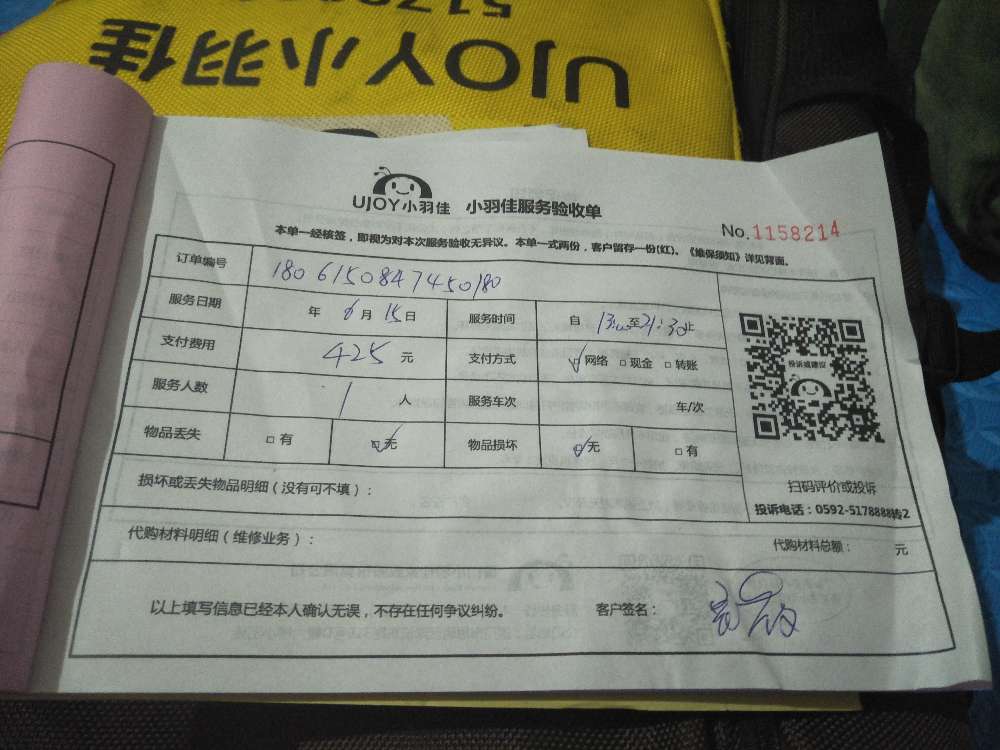 UJOY小羽佳
UJOY小羽佳 小羽佳服务验收单
No.1158214
本单一经核签，即视为对本次服务验收无异议。本单一式两份，客户留存一份(红)。《维保须知》详见背面。
订单编号 1806150847450180
服务日期 年 6月 15日 服务时间 自 13:00至21:30止
支付费用 425 元 支付方式 ☑网络 □现金 □转账
服务人数 1 人 服务车次 车/次
物品丢失 □有 ☑无 物品损坏 ☑无 □有
投诉或建议
扫码评价或投诉
投诉电话：0592-5178888转2
损坏或丢失物品明细（没有可不填）：
代购材料明细（维修业务）： 代购材料总额： 元
以上填写信息已经本人确认无误，不存在任何争议纠纷。 客户签名：